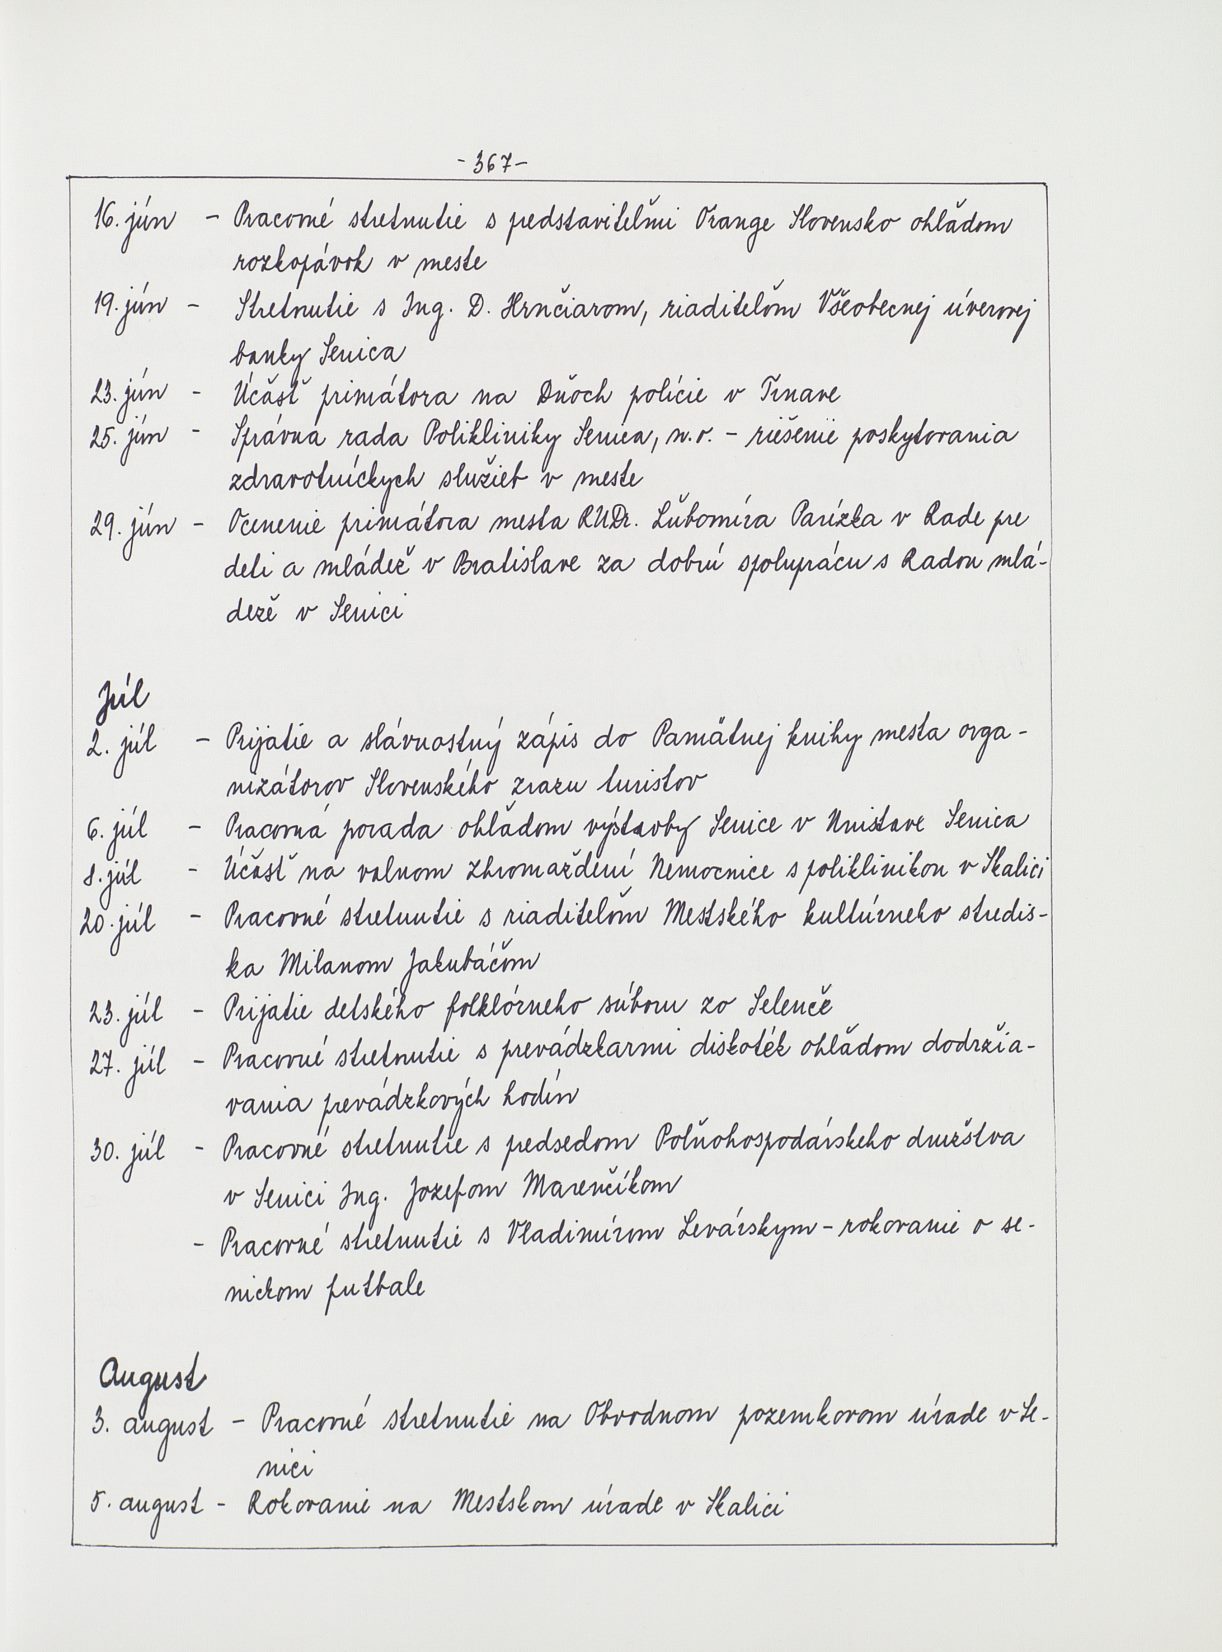 - 367 -
16. jún - Pracovné stretnutie s predstaviteľmi Orange Slovensko ohľadom
rozkopávok v meste
19. jún - Stretnutie s Ing. D. Hrnčiarom, riaditeľom Všeobecnej úverovej
banky Senica
23. jún - Účasť primátora na Dňoch polície v Trnave
25. jún - Správna rada Polikliniky Senica, n.o. - riešenie poskytovania
zdravotníckych služieb v meste
29. jún - Ocenenie primátora mesta RNDr. Ľubomíra Parízka v Rade pre
deti a mládež v Bratislave za dobrú spoluprácu s Radou mlá-
deže v Senici
Júl
2. júl - Prijatie a slávnostný zápis do Pamätnej knihy mesta orga-
nizátorov Slovenského zrazu turistov
6. júl - Pracovná porada ohľadom výstavby Senice v Unistave Senica
8. júl - Účasť na valnom zhromaždení Nemocnice s poliklinikou v Skalici
20. júl - Pracovné stretnutie s riaditeľom Mestského kultúrneho stredis-
ka Milanom Jakubáčom
23. júl - Prijatie detského folklórneho súboru zo Selenče
27. júl - Pracovné stretnutie s prevádzkarmi diskoték ohľadom dodržia-
vania prevádzkových hodín
30. júl - Pracovné stretnutie s predsedom Poľnohospodárskeho družstva
v Senici Ing. Jozefom Marenčíkom
- Pracovné stretnutie s Vladimírom Levárskym - rokovanie o se-
nickom futbale
August
3. august - Pracovné stretnutie na Obvodnom pozemkovom úrade v Se-
nici
5. august - Rokovanie na Mestskom úrade v Skalici